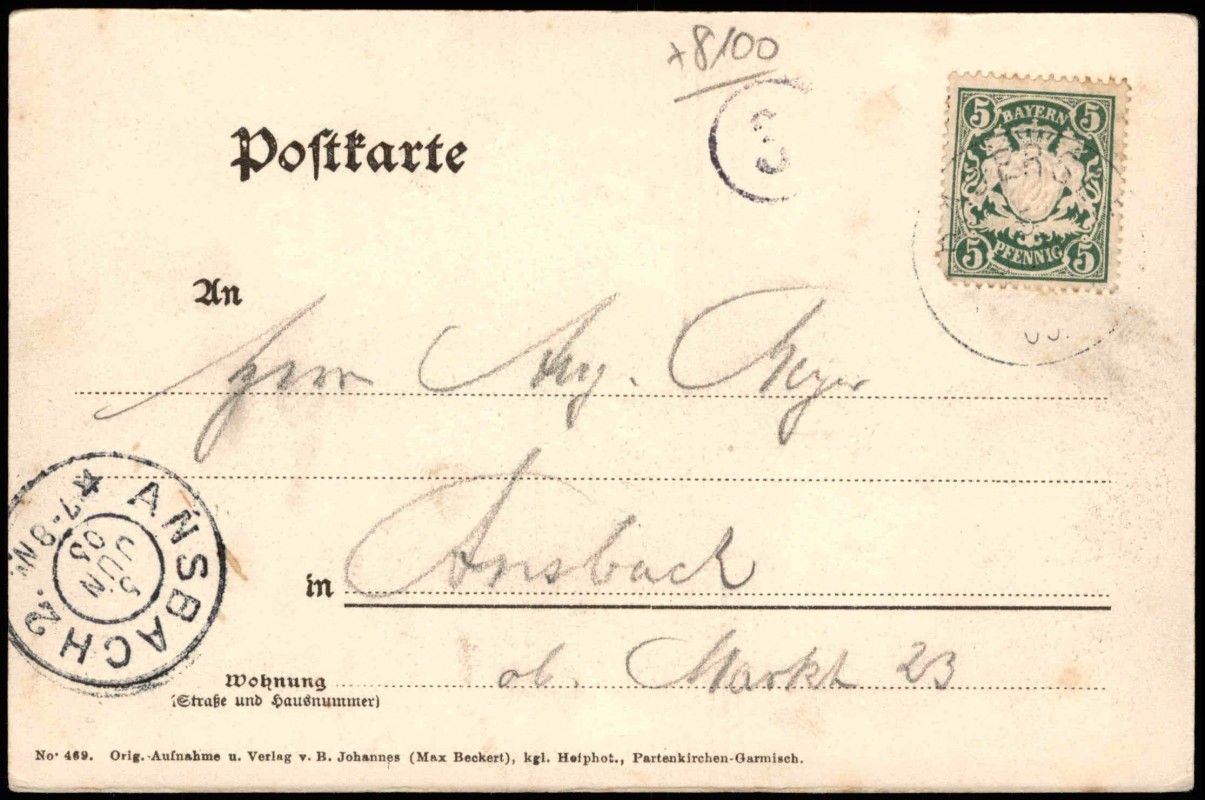 x8100
3
Postkarte
5 BAYERN 5
5 PFENNIG 5
An
Herrn Aug. Beyer
ANSBACH 2.
7-8 N
5
JUN
03
in Ansbach
Wohnung ob. Markt 23
(Straße und Hausnummer)
No. 469. Orig.-Aufnahme u. Verlag v. B. Johannes (Max Beckert), kgl. Hofphot., Partenkirchen-Garmisch.